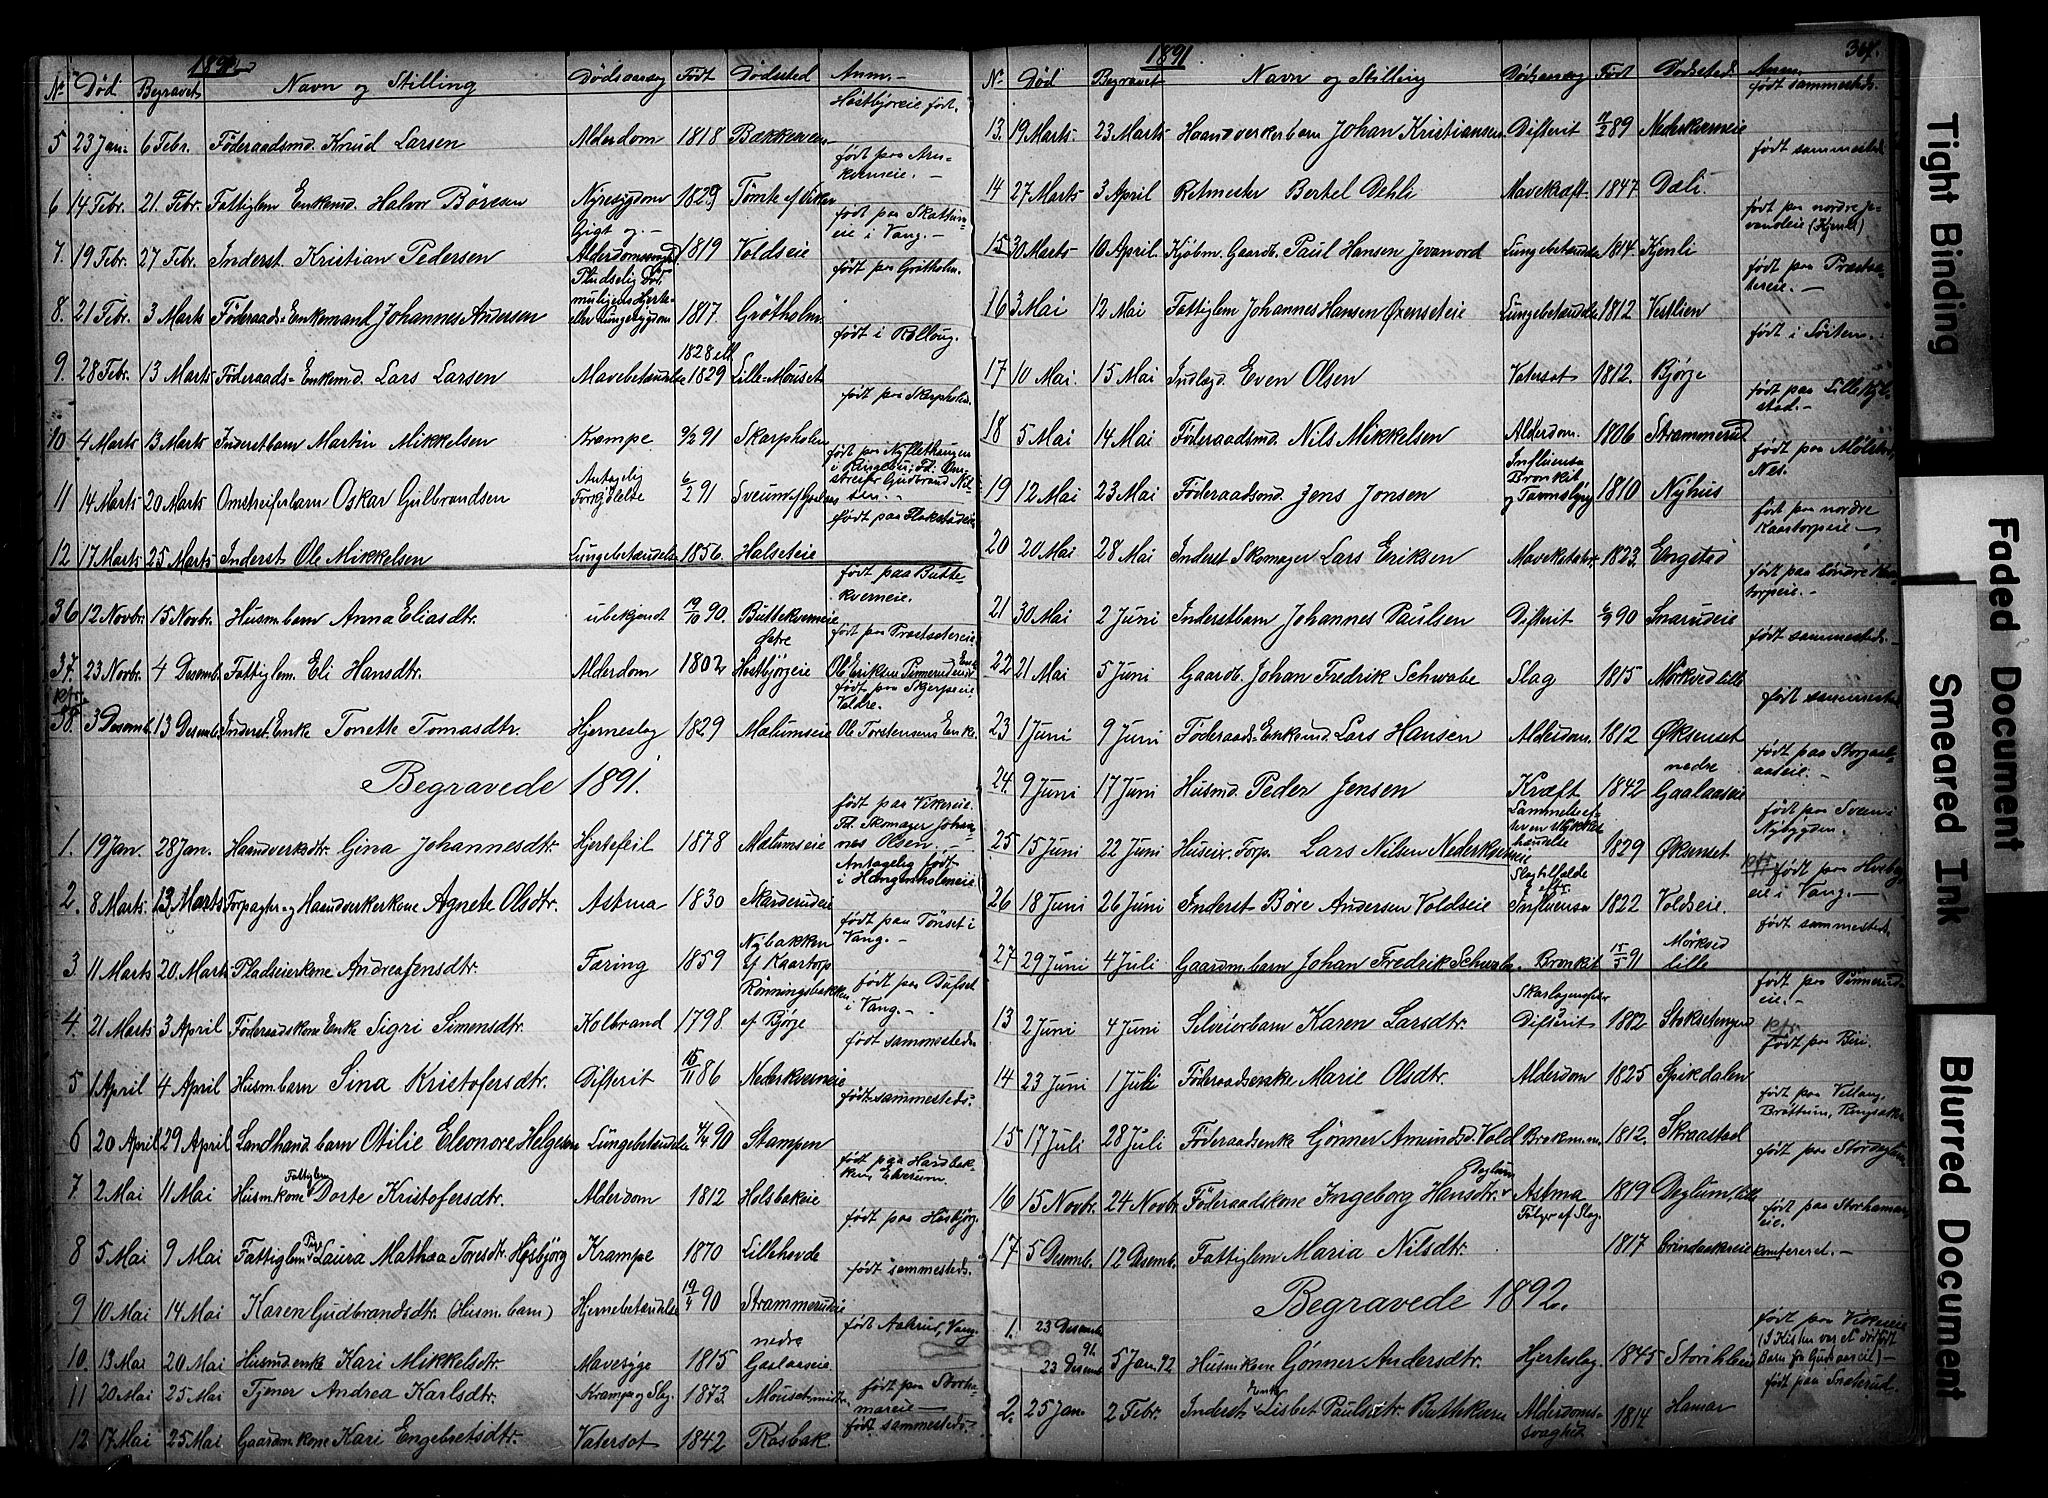 1891
Nr. Død Begravet Navn og Stilling Dødsaarsag Født Dødssted Anm.
Høstbjøreie født.
5 23 Jan. 6 Febr. Föderaadsmd. Knud Larsen Alderdom 1818 Bakkeveen
født paa
kverneie. —
6 14 Febr. 21. Febr. Fattiglem Enkemd. Halvor Börsen Nyresygdom 1829 Tømte af Viken
født paa Skattum-
eie i Vang. —
7. 19 Febr. 27 Febr. Inderst. Kristian Pedersen Gigt og Alderdomssvaghed 1819 Voldseie
født paa Grötholm.
8. 21 Febr. 3 Marts Föderaads-Enkemand Johannes Andersen Pludselig Død, muligens Hjerte- eller Lungesygdom 1817. Grötholm
født i Rollaug.
9. 28 Febr. 13 Marts Föderaads-Enkemd. Lars Larsen Mavebetændelse 1828 ell 1829 Lille-Mouset
født paa Skarpholm.
10 4 Marts 13 Marts Inderstbarn Martin Mikkelsen Krampe 9/2 91 Skarpholm
født paa
i Ringebu; Fd. Om-
streifer Gudbrand Nil-
sen. —
11 14 Marts 20 Marts Omstreiferbarn Oskar Gulbrandsen Antagelig 6/2 91
født paa Flakstadeie
12 17 Marts 25 Marts Inderst Ole Mikkelsen Lungebetændelse 1856. Halseteie
født paa Butte-
kverneie.
36 12 Novbr. 15 Novbr. Husm.barn Anna Eliasdtr. ubekjendt 19/10 90. Buttekverneie
født paa Præstsætereie
37. 23 Novbr. 4 Desemb. Fattiglem. Eli Hansdtr. Alderdom 1802 øvre Høstbjørgeie Ole Eriksen Pinnerudeies Enke
født paa Skjerpseie,
Valdre.
38. 3 Desemb. 13 Desemb. Inderst. Enke Tonette Tomasdtr. Hjerneslag 1829 Mælumseie Ole Torstensens Enke.
Begravede 1891.
født paa Vikereie.
Fd. Skomager Johan-
nes Olsen. —
1. 19 Jan. 28 Jan. Haandverksdtr. Gina Johannesdtr. Hjertefeil 1878 Mælumseie
Antagelig født
i Hængenholeneie
2. 8 Marts. 13 Marts Forpagter- og Haandverkerkone Agnete Olsdtr. Astma 1830 Skarderudeie
født paa Tönset i
Vang. —
3 11 Marts 20. Marts Pladseierkone Andrea Jensdtr. Tæring 1859 Nybakken af Kaartorp
født paa Dufset
i Vang. —
4. 21 Marts 3 April Föderaadskone Enke Sigri Simensdtr. Kolbrand 1798 Rönningsbakken af Bjørge
født sammesteds
5 1 April 4 April Husm.barn Sina Kristofersdtr. Difterit 15/11 86 Nederkverneie
født sammesteds.
6 20 April 29 April Landhand.barn Otilie Eleonore Helgesen Lungebetændelse 4/4 90 Stampen
født paa Hardbak-
ken, Elverum.
7. 2 Mai 11 Mai Husm.kone Fattiglem Dorte Kristofersdtr. Alderdom 1812 Holsbakeie
født paa Høsbjörg.
8 5 Mai 9 Mai Fattiglem Pige Laura Mathea Toresdtr. Høsbjörg Krampe 1870 Lillehovde
født sammesteds.
9 10 Mai 14 Mai Karen Gudbrandsdtr. (Husm. barn) Hjernebetændelse 19/4 90 Strammerudeie
født Aakrud, Vang.
10. 13 Mai 20 Mai Husmdenke Kari Mikkelsdtr. Mavesyge 1815 nedre Gaalaaseie
født paa Storha-
mareie —
11 20 Mai 25 Mai Tjener Andrea Karlsdtr. Krampe og Slag. 1873.
født sammesteds.
12 17 Mai 25 Mai Gaardm.kone Kari Engebretsdtr. Vatersot 1842 Rosbak
1891
304.
Nr. Død Begravet Navn og Stilling Dødsaarsag Født Dødssted Anm.
født sammesteds.
13. 19 Marts 23 Marts Haandverkerbarn Johan Kristiansen Difterit 17/2 89 Nederkverneie
født sammesteds
14 27 Marts 3 April Retmester Bertel Dehli Mavekræft 1847 Dæli.
født paa nordre Je-
vanoleie (Kjenli)
15 30 Marts 10 April. Kjöbm. Gaardb. Paul Hansen Jevanord Lungebetændelse 1814. Kjenli
født paa Præstsæ-
tereie. —
16 3 Mai 12 Mai Fattiglem Johannes Hansen Oxenseteie Lungebetændelse 1812 Vestlien
født i Sörten.
17 10 Mai. 15 Mai Indlagd. Even Olsen Vatersot 1812. Bjørge
født paa Lille Kjl-
stad. —
18 5 Mai 14 Mai Föderaadsmd. Nils Mikkelsen Alderdom. 1806 Strammerud
født paa
Nes.
19 12 Mai 23 Mai Föderaadsmd. Jens Jonsen Influensa Bronkit og 1810 Nyhus
født paa nordre
Kaastorpeie —
20 20 Mai 28 Mai Inderst Skomager Lars Eriksen Mavekatahr. 1823. Engstad
født paa söndre Kaa-
torpeie. —
21 30 Mai 2 Juni Inderstbarn Johannes Paulsen Difterit 6/9 90 Snarudeie
født sammesteds. —
22 21 Mai 5 Juni Gaardb. Johan Fredrik Schwabe Slag 1815 Mørkved lille
født sammesteds
23 1 Juni 9 Juni Föderaads-Enkemd. Lars Hansen Alderdom. 1812 Øksenset
født paa Storgaal-
aaseie. —
24. 9 Juni 17 Juni Husmd. Peder Jensen Kræft 1842 nedre Gaalaaseie
født paa Sveen i
Nybygden.
25 15 Juni 22 Juni Huseier, Forp. Lars Nilsen Nederkverneie 1829 Øksenset
født paa
eie i Vang. —
26 18 Juni 26 Juni Inderst Böre Andersen Voldseie Slagtilfælde efter Influensa 1822 Voldseie.
født sammesteds
27 29 Juni 4 Juli Gaardm.barn Johan Fredrik Schwabe. Bronkit 15/5 91 Mörkved lille
født paa Pinnerud-
eie. —
13 2 Juni 4 Juni Selveierbarn Karen Larsdtr. Skarlagensfeber Difterit 1882 Stoksetengen
født paa Biri.
14 23 Juni 1 Juli Föderaadsenke Marie Olsdtr. Alderdom 1825 Spikdalen
født paa
Bröttum, Ringsaker
15 17 Juli 28 Juli Föderaadsenke Gönner Amundsd. Vold Brokmem 1812. Skraastad
født paa Stordeglum
16 15 Novbr. 24 Novbr. Föderaadskone Ingeborg Hansdtr. Deglum Astma 1819 Deglum, lille
født paa Storhamar-
eie. —
17. 5 Desemb. 12 Desemb. Fattiglem Maria Nilsdtr. Følger af Slag. 1817 Grindaakreie konfereret. —
Begravede 1892.
født paa Vikereie
(I Kisten var et dödfödt
Barn fra Gjudaaseie) —
1. 23 Desemb. 91. 23 Desemb 5 Jan. 92 Husm.kone Gönner Andersdtr. Hjerteslag. 1845 Storihleeie
født paa Snærud.
2. 25 Jan. 2 Febr. Inderst. Enke Lisbet Paulsdtr. Alderdoms-svaghed 1814 Hamar
Tight Binding
Faded Document
Smeared Ink
Blurred Document